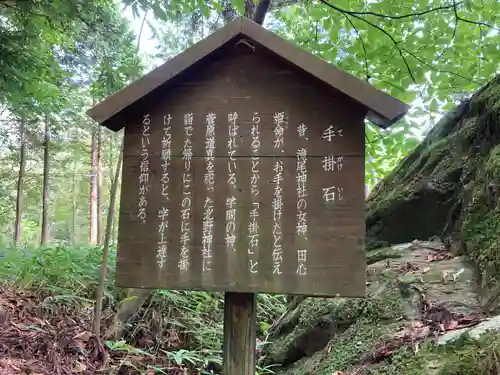 手掛石
て がけ いし
昔、滝尾神社の女神、田心
姫命が、お手を掛けたと伝え
られることから「手掛石」と
呼ばれている。学問の神、
菅原道真を祀った北野神社に
詣でた帰りにこの石に手を掛
けて祈願すると、字が上達す
るという信仰がある。